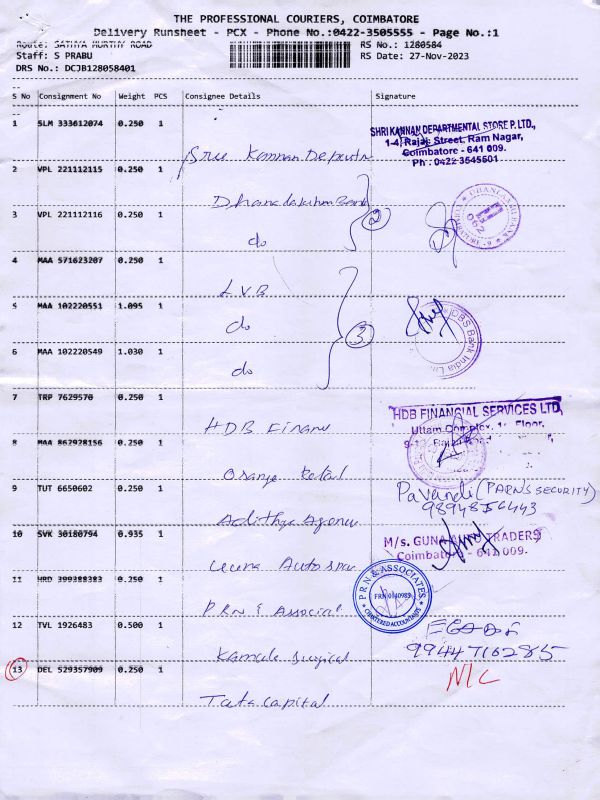 THE PROFESSIONAL COURIERS, COIMBATORE
Delivery Runsheet - PCX - Phone No.:0422-3505555 - Page No.:1
Route: SATHYA MURTHY ROAD RS No.: 1280584
Staff: S PRABU RS Date: 27-Nov-2023
DRS No.: DCJB128058401
S No Consignment No Weight PCS Consignee Details Signature
1 SLM 333612074 0.250 1
SHRI KANNAN DEPARTMENTAL STORE P. LTD.,
1-4, Rajaji Street, Ram Nagar,
Coimbatore - 641 009.
Ph : 0422 3545501
Sree Kannan Depart
2 VPL 221112115 0.250 1
Dhanalakshmi Bank
3 VPL 221112116 0.250 1
2
DHANLAXMI BANK
COIMBATORE
062
do
4 MAA 571623207 0.250 1
LVB
5 MAA 102220551 1.095 1
do
3
DBS Bank India
6 MAA 102220549 1.030 1
do
7 TRP 7629570 0.250 1
HDB FINANCIAL SERVICES LTD,
Uttam Complex, Floor,
HDB Finanu
8 MAA 862928156 0.250 1
Orange Retail
9 TUT 6650602 0.250 1
Pavandi (PARNS SECURITY)
9894856443
Adithya Agency
10 SVK 30180794 0.935 1
M/s. GUNA TRADERS
Coimbatore - 641 009.
Leena Autospar
11 HRD 399388383 0.250 1
P.R.N & ASSOCIATES
FRN 014098S
CHARTERED ACCOUNTANTS
PRN & Associat
12 TVL 1926483 0.500 1
9944716285
Kamala Surgical
13 DEL 529357909 0.250 1
N/C
Tata Capital